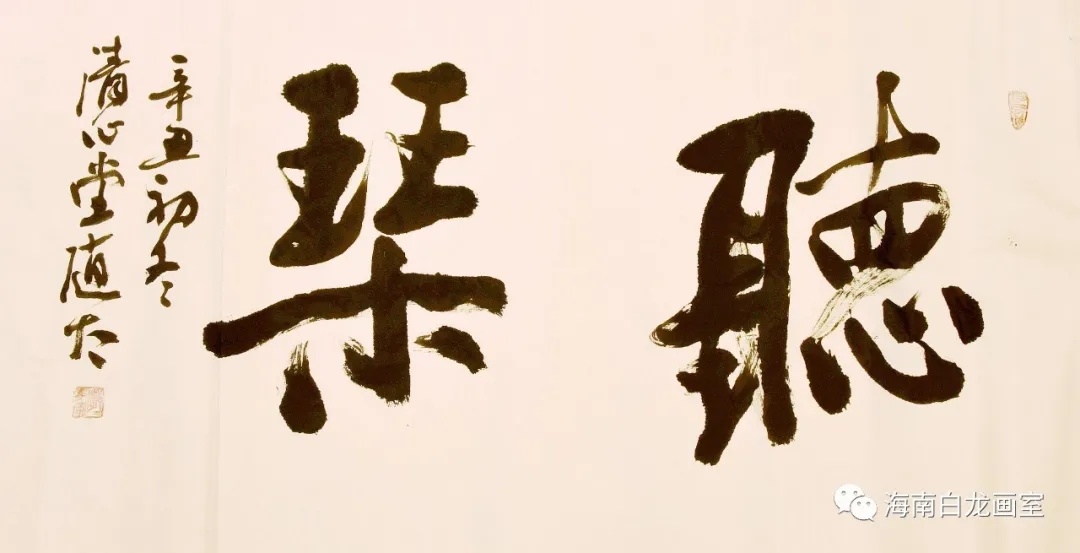 聽琹
辛丑初冬
清心堂
海南白龙画室